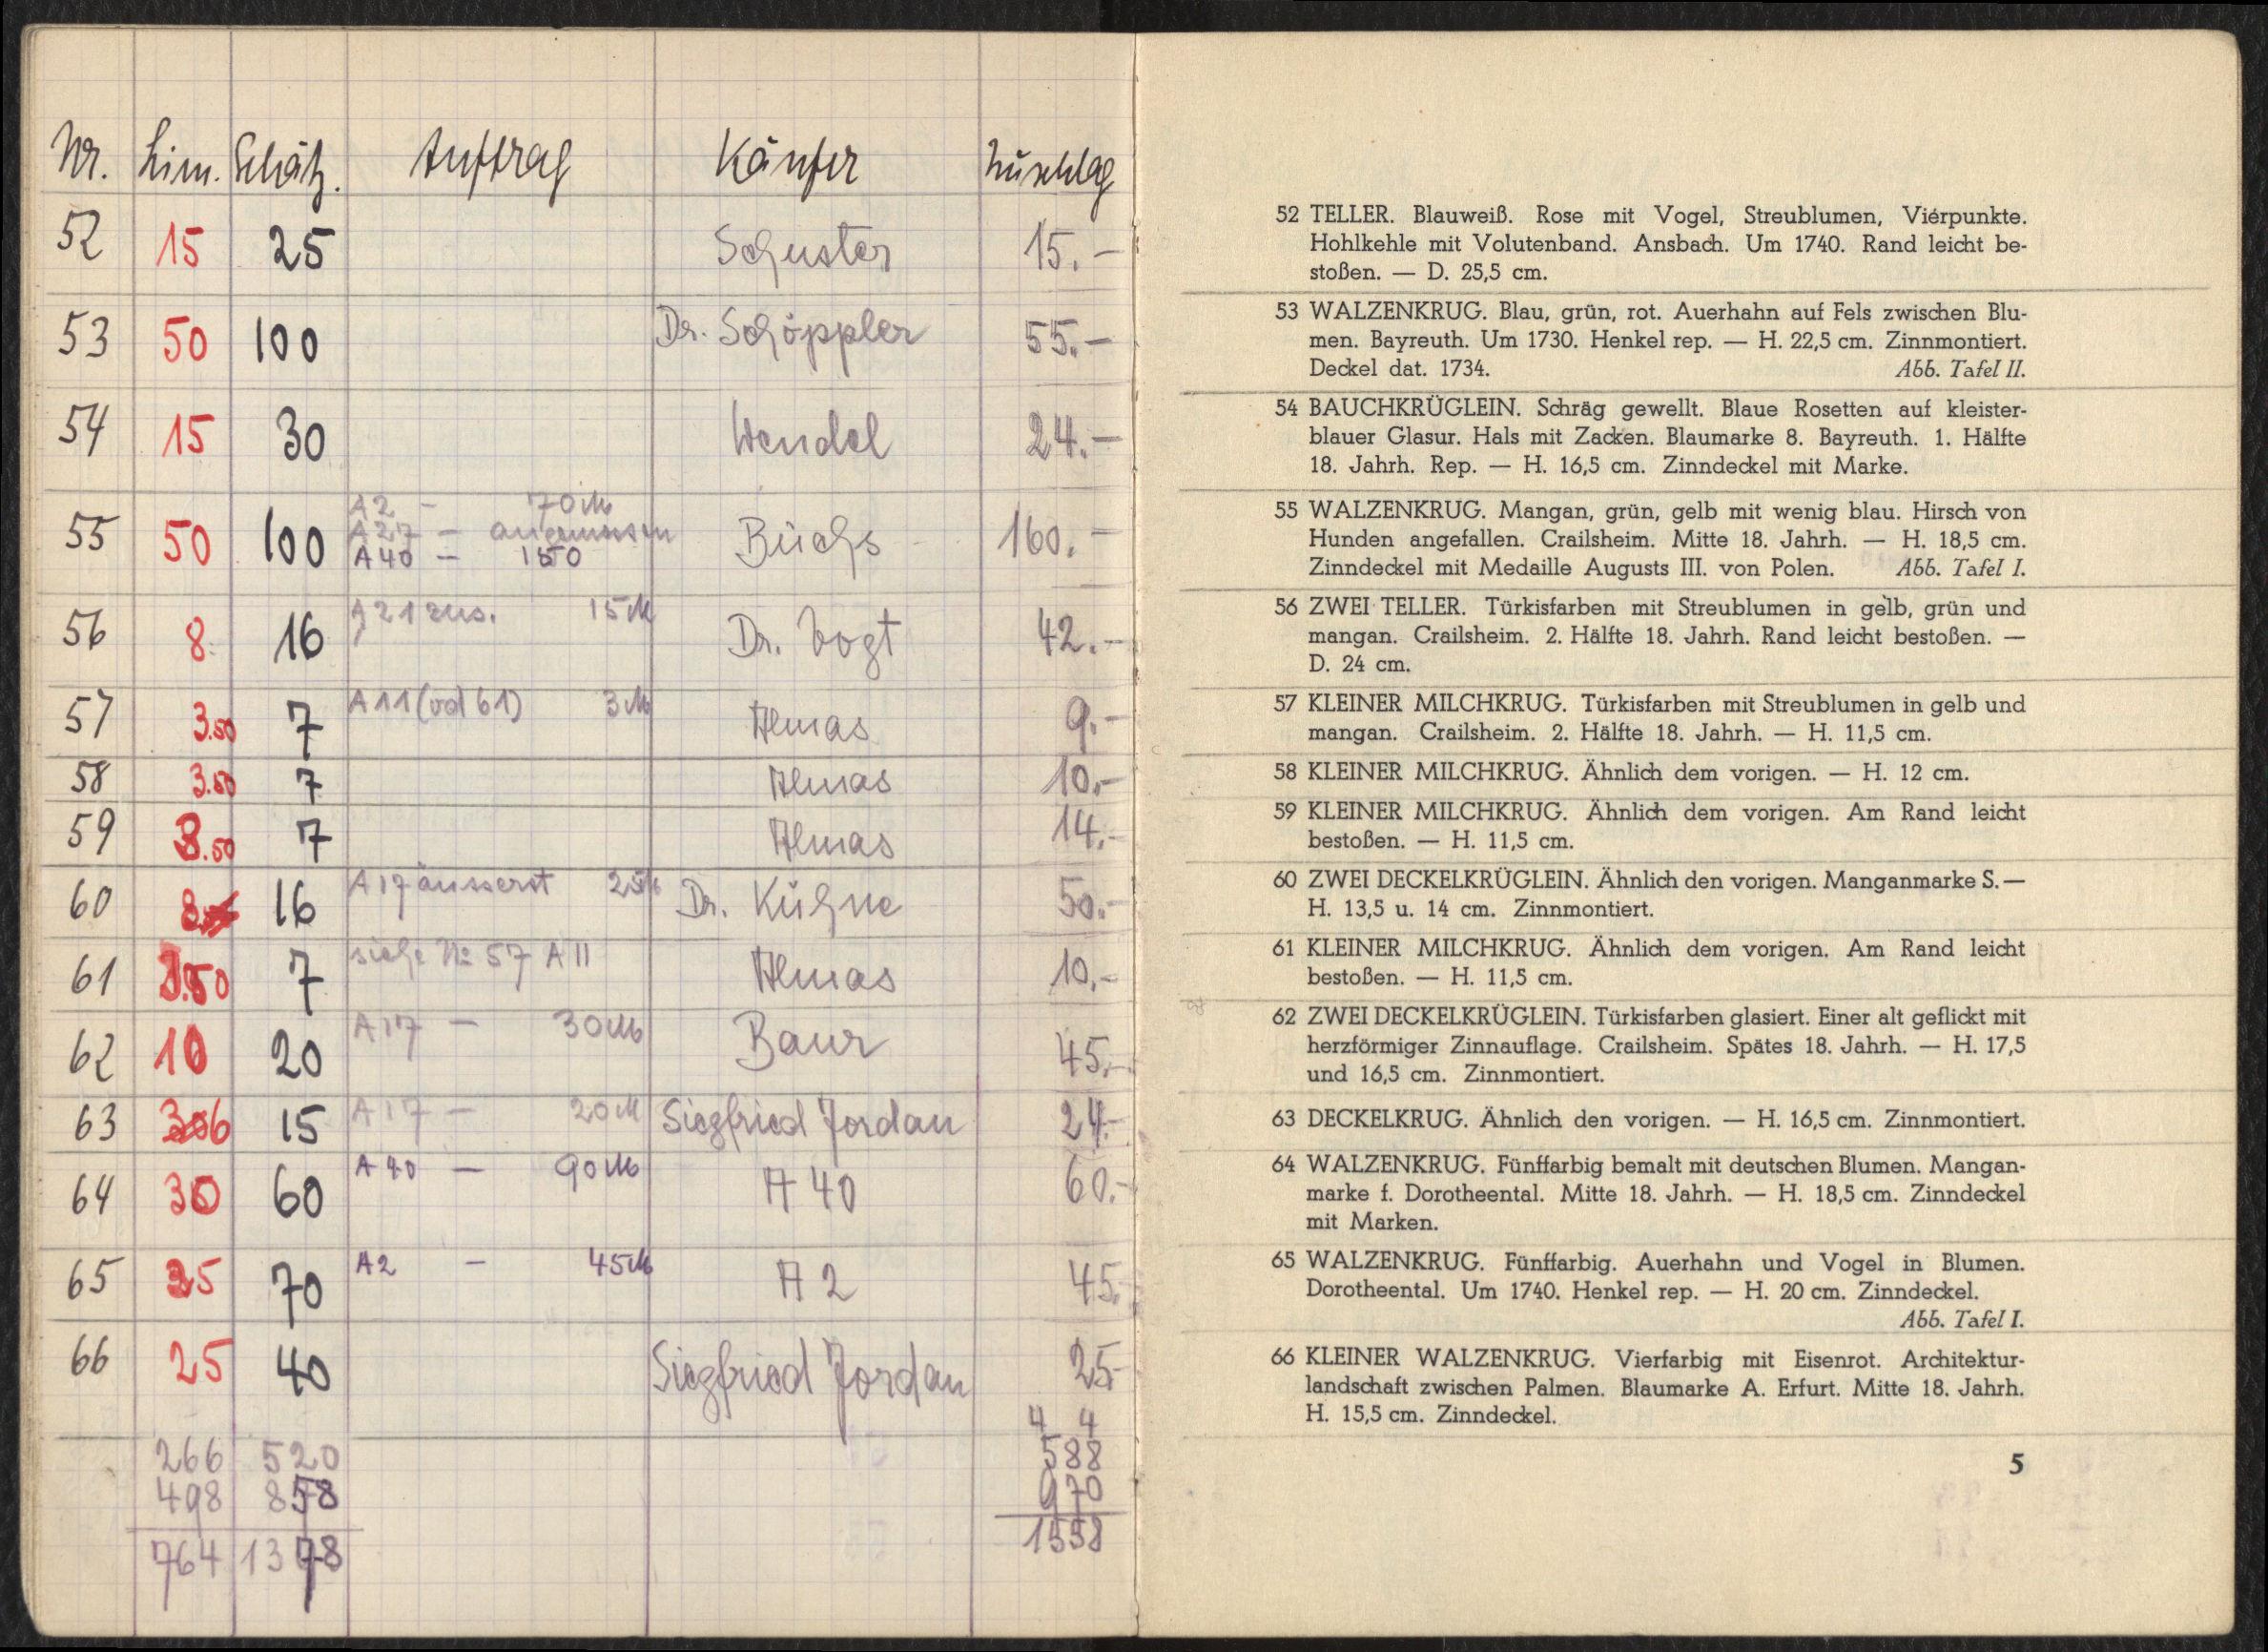 Nr. Lim. Schätz. Auftrag Käufer Zuschlag
52 15 25 Schuster 15.-
53 50 100 Dr. Schöppler 55.-
54 15 30 Wendel 24.-
A2 - 70 M
A27 - angemessen
55 50 100 A40 - 150 Büchs 160.-
56 8 16 A21 zus. 15 M Dr. Vogt 42.-
57 3.50 7 A11 (od 61) 3 M Almas 9.-
58 3.50 7 Almas 10.-
59 3.50 7 Almas 14.-
60 8 16 A17 äusserst 25 M Dr. Kühne 50.-
61 3.50 7 siehe No 57 A11 Almas 10.-
62 10 20 A17 - 30 M Baur 45.-
63 6 15 A17 - 20 M Siegfried Jordan 24.-
64 30 60 A40 - 90 M A 40 60.-
65 35 70 A2 - 45 M A 2 45.-
66 25 40 Siegfried Jordan 25-
4 4
266 520 588
498 858 970
764 1378 1558
52 TELLER. Blauweiß. Rose mit Vogel, Streublumen, Viérpunkte.
Hohlkehle mit Volutenband. Ansbach. Um 1740. Rand leicht be-
stoßen. — D. 25,5 cm.
53 WALZENKRUG. Blau, grün, rot. Auerhahn auf Fels zwischen Blu-
men. Bayreuth. Um 1730. Henkel rep. — H. 22,5 cm. Zinnmontiert.
Deckel dat. 1734. Abb. Tafel II.
54 BAUCHKRÜGLEIN. Schräg gewellt. Blaue Rosetten auf kleister-
blauer Glasur. Hals mit Zacken. Blaumarke 8. Bayreuth. 1. Hälfte
18. Jahrh. Rep. — H. 16,5 cm. Zinndeckel mit Marke.
55 WALZENKRUG. Mangan, grün, gelb mit wenig blau. Hirsch von
Hunden angefallen. Crailsheim. Mitte 18. Jahrh. — H. 18,5 cm.
Zinndeckel mit Medaille Augusts III. von Polen. Abb. Tafel I.
56 ZWEI TELLER. Türkisfarben mit Streublumen in gelb, grün und
mangan. Crailsheim. 2. Hälfte 18. Jahrh. Rand leicht bestoßen. —
D. 24 cm.
57 KLEINER MILCHKRUG. Türkisfarben mit Streublumen in gelb und
mangan. Crailsheim. 2. Hälfte 18. Jahrh. — H. 11,5 cm.
58 KLEINER MILCHKRUG. Ähnlich dem vorigen. — H. 12 cm.
59 KLEINER MILCHKRUG. Ähnlich dem vorigen. Am Rand leicht
bestoßen. — H. 11,5 cm.
60 ZWEI DECKELKRÜGLEIN. Ähnlich den vorigen. Manganmarke S. —
H. 13,5 u. 14 cm. Zinnmontiert.
61 KLEINER MILCHKRUG. Ähnlich dem vorigen. Am Rand leicht
bestoßen. — H. 11,5 cm.
62 ZWEI DECKELKRÜGLEIN. Türkisfarben glasiert. Einer alt geflickt mit
herzförmiger Zinnauflage. Crailsheim. Spätes 18. Jahrh. — H. 17,5
und 16,5 cm. Zinnmontiert.
63 DECKELKRUG. Ähnlich den vorigen. — H. 16,5 cm. Zinnmontiert.
64 WALZENKRUG. Fünffarbig bemalt mit deutschen Blumen. Mangan-
marke f. Dorotheental. Mitte 18. Jahrh. — H. 18,5 cm. Zinndeckel
mit Marken.
65 WALZENKRUG. Fünffarbig. Auerhahn und Vogel in Blumen.
Dorotheental. Um 1740. Henkel rep. — H. 20 cm. Zinndeckel.
Abb. Tafel I.
66 KLEINER WALZENKRUG. Vierfarbig mit Eisenrot. Architektur-
landschaft zwischen Palmen. Blaumarke A. Erfurt. Mitte 18. Jahrh.
H. 15,5 cm. Zinndeckel.
5